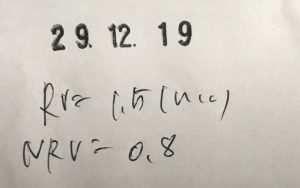 29. 12. 19
RV= 1.5 (u.c)
NRV= 0.8